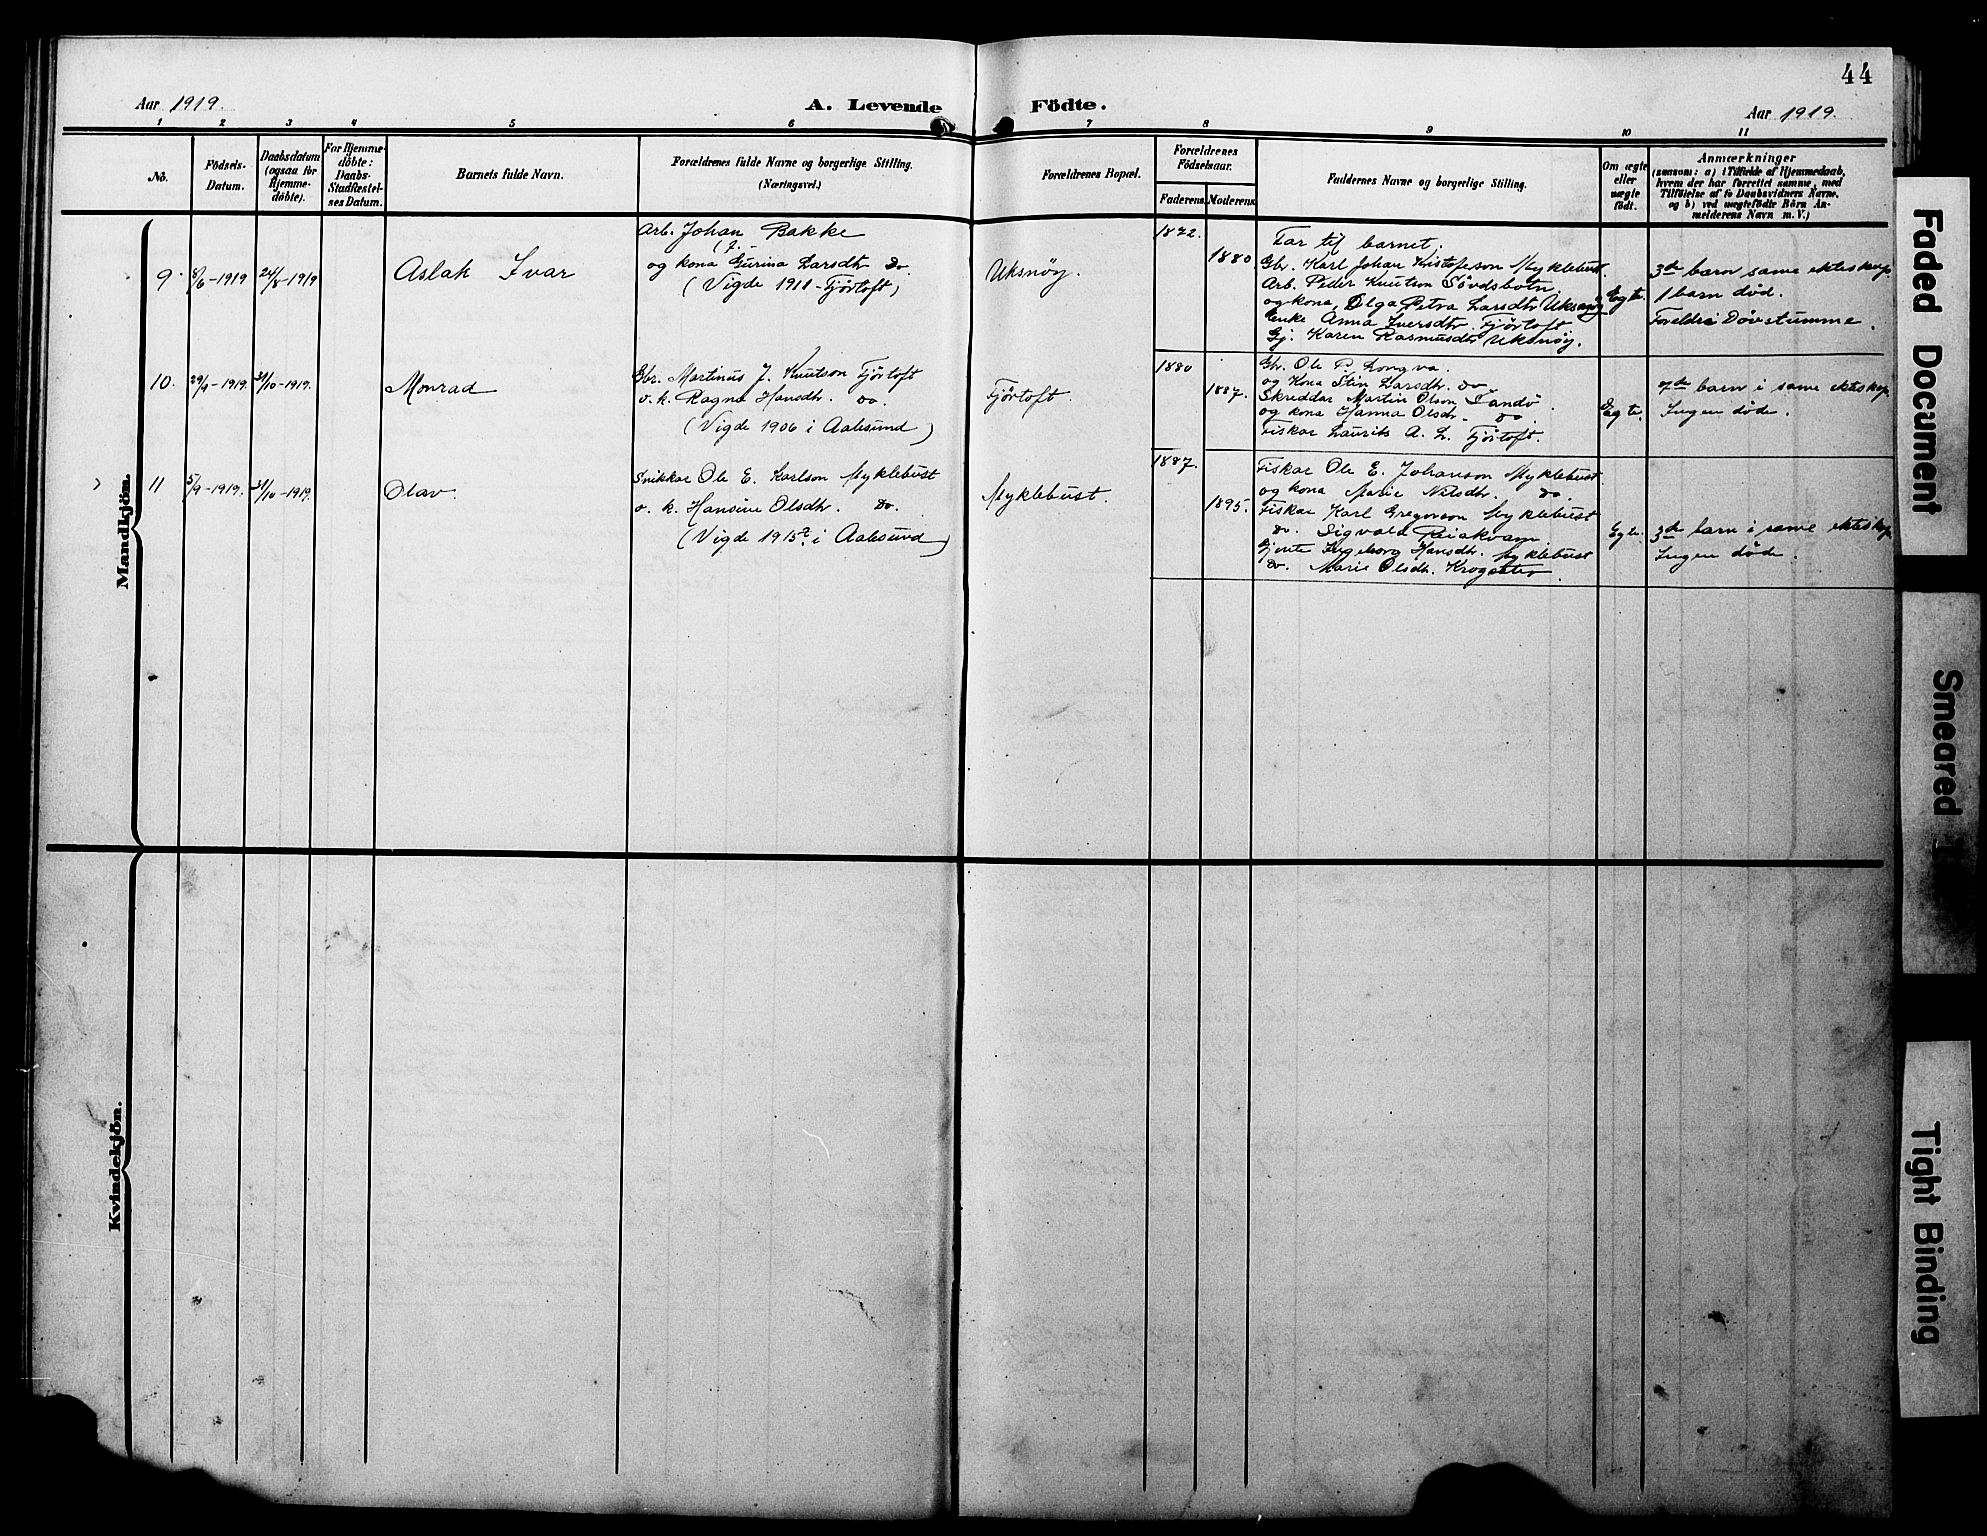 44
Aar 1919.
A. Levende Födte.
Aar 1919.
1 2 3 4 5 6 7 8 9 10 11
No.
Födsels-
Datum.
Daabsdatum
(ogsaa for
Hjemme-
döbte).
For Hjemme-
döbte:
Daabs-
Stadfæstel-
ses Datum.
Barnets fulde Navn.
Forældrenes fulde Navne og borgerlige Stilling.
(Næringsvei.)
Forældrenes Bopæl.
Forældrenes
Födselsaar.
Faderens. Moderens.
Faddernes Navne og borgerlige Stilling.
Om ægte
eller
uægte
födt.
Anmærkninger
(saasom: a) i Tilfælde af Hjemmedaab,
hvem der har forrettet samme, med
Tilföielse af to Daabsvidners Navne,
og b) ved uægtefödte Börn An-
melderens Navn m. V.)
Mandkjön.
9. 8/6-1919 24/8-1919
Aslak Ivar
Arb. Johan Bakke
og kona Gurina Larsdtr. Do.
(Vigde 1911 - Fjørtoft)
Uksnøy.
1872.
1880.
Far til barnet.
Gbr. Karl Johan Kristofeson Myklebust.
Arb. Peder Knutsen Søvdsbotn.
og kona Olga Petra Larsdtr Uksnøy
Enke Anna Iversdtr. Fjørtoft
Gj. Karen Rasmusdtr Uksnøy.
Egte.
3de barn same ekteskap
1 barn død.
Foreldre Døvstumme.
10. 29/9-1919. 31/10-1919.
Monrad
Gbr. Martinus J. Knutson Fjørtoft
o. k. Ragna Hansdtr. do.
(Vigde 1906 i Aalesund)
Fjørtoft.
1880
1887.
Gbr. Ole P. Longva.
og Kona Stin Larsdtr. do
Skreddar Martin Olson Sandø
og kona Hanna Olsdtr. do
Fiskar Laurits A. L. Fjørtoft.
Egte.
7de barn i same ekteskap.
Ingen døde.
11 5/9-1919. 31/10-1919.
Olav.
Snikkar Ole E. Karlson Myklebust
o. k. Hansine Olsdtr. Do.
(Vigde 1915 i Aalesund)
Myklebust.
1887.
1895.
Fiskar Ole E. Johanson Myklebust
og kona Marie Nilsdtr. do.
Fiskar Karl Gregorson Myklebust
do. Sigvald
Gjente Ingeborg Hansdtr. Myklebust
do. Marie Olsdtr. Krogsæter.
Egte.
3de barn i same ekteskap.
Ingen døde.
Kvindekjön.
Faded Document
Smeared
Tight Binding